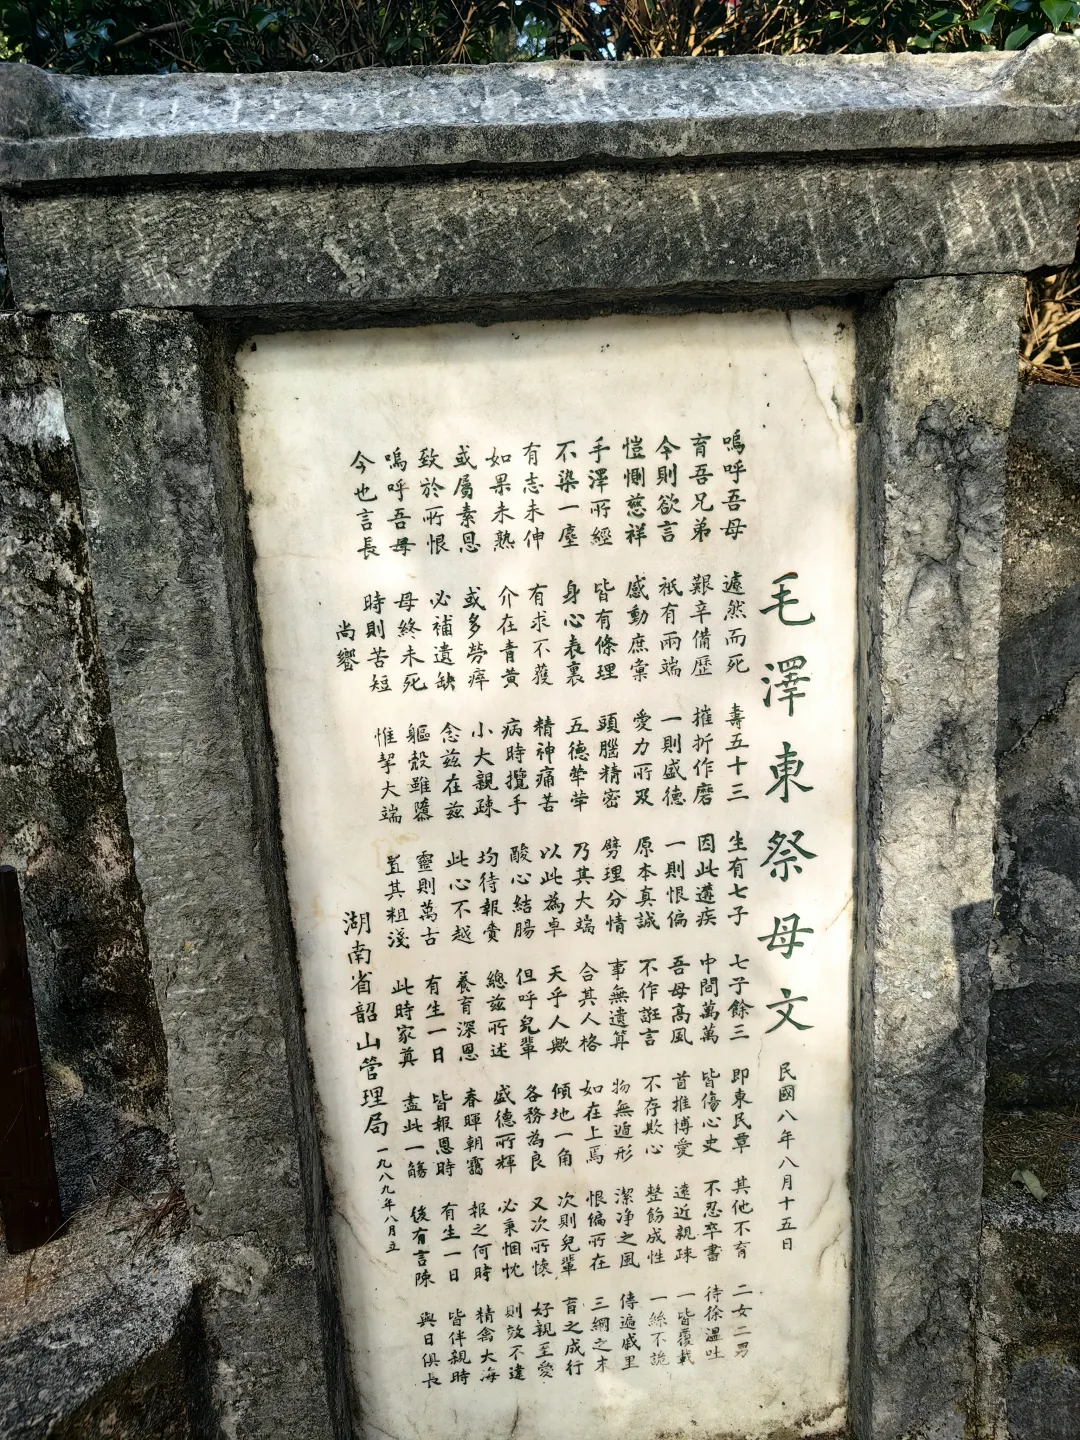 毛澤東祭母文 民國八年八月十五日
嗚呼吾母 遽然而死 壽五十三 生有七子 七子餘三 即東民覃 其他不育 二女二男
育吾兄弟 艱辛備歷 摧折作磨 因此遘疾 中間萬萬 皆傷心史 不忍卒書 待徐溫吐
今則欲言 祇有兩端 一則盛德 一則恨偏 吾母高風 首推博愛 遠近親疎 一皆覆載
愷惻慈祥 感動庶彙 愛力所及 原本真誠 不作誑言 不存欺心 整飭成性 一絲不詭
手澤所經 皆有條理 頭腦精密 劈理分情 事無遺算 物無遁形 潔淨之風 傳遍戚里
不染一塵 身心表裏 五德犖犖 乃其大端 合其人格 如在上焉 恨偏所在 三綱之末
有志未伸 有求不獲 精神痛苦 以此為卓 天乎人歟 傾地一角 次則兒輩 育之成行
如果未熟 介在青黃 病時攬手 酸心結腸 但呼兒輩 各務為良 又次所懷 好親至愛
或屬素恩 或多勞瘁 小大親疎 均待報賚 總茲所述 盛德所輝 必秉悃忱 則效不違
致於所恨 必補遺缺 念茲在茲 此心不越 養育深恩 春暉朝靄 報之何時 精禽大海
嗚呼吾母 母終未死 軀殼雖隳 靈則萬古 有生一日 皆報恩時 有生一日 皆伴親時
今也言長 時則苦短 惟挈大端 置其粗淺 此時家奠 盡此一觴 後有言陳 與日俱長
尚饗
湖南省韶山管理局 一九八九年八月立